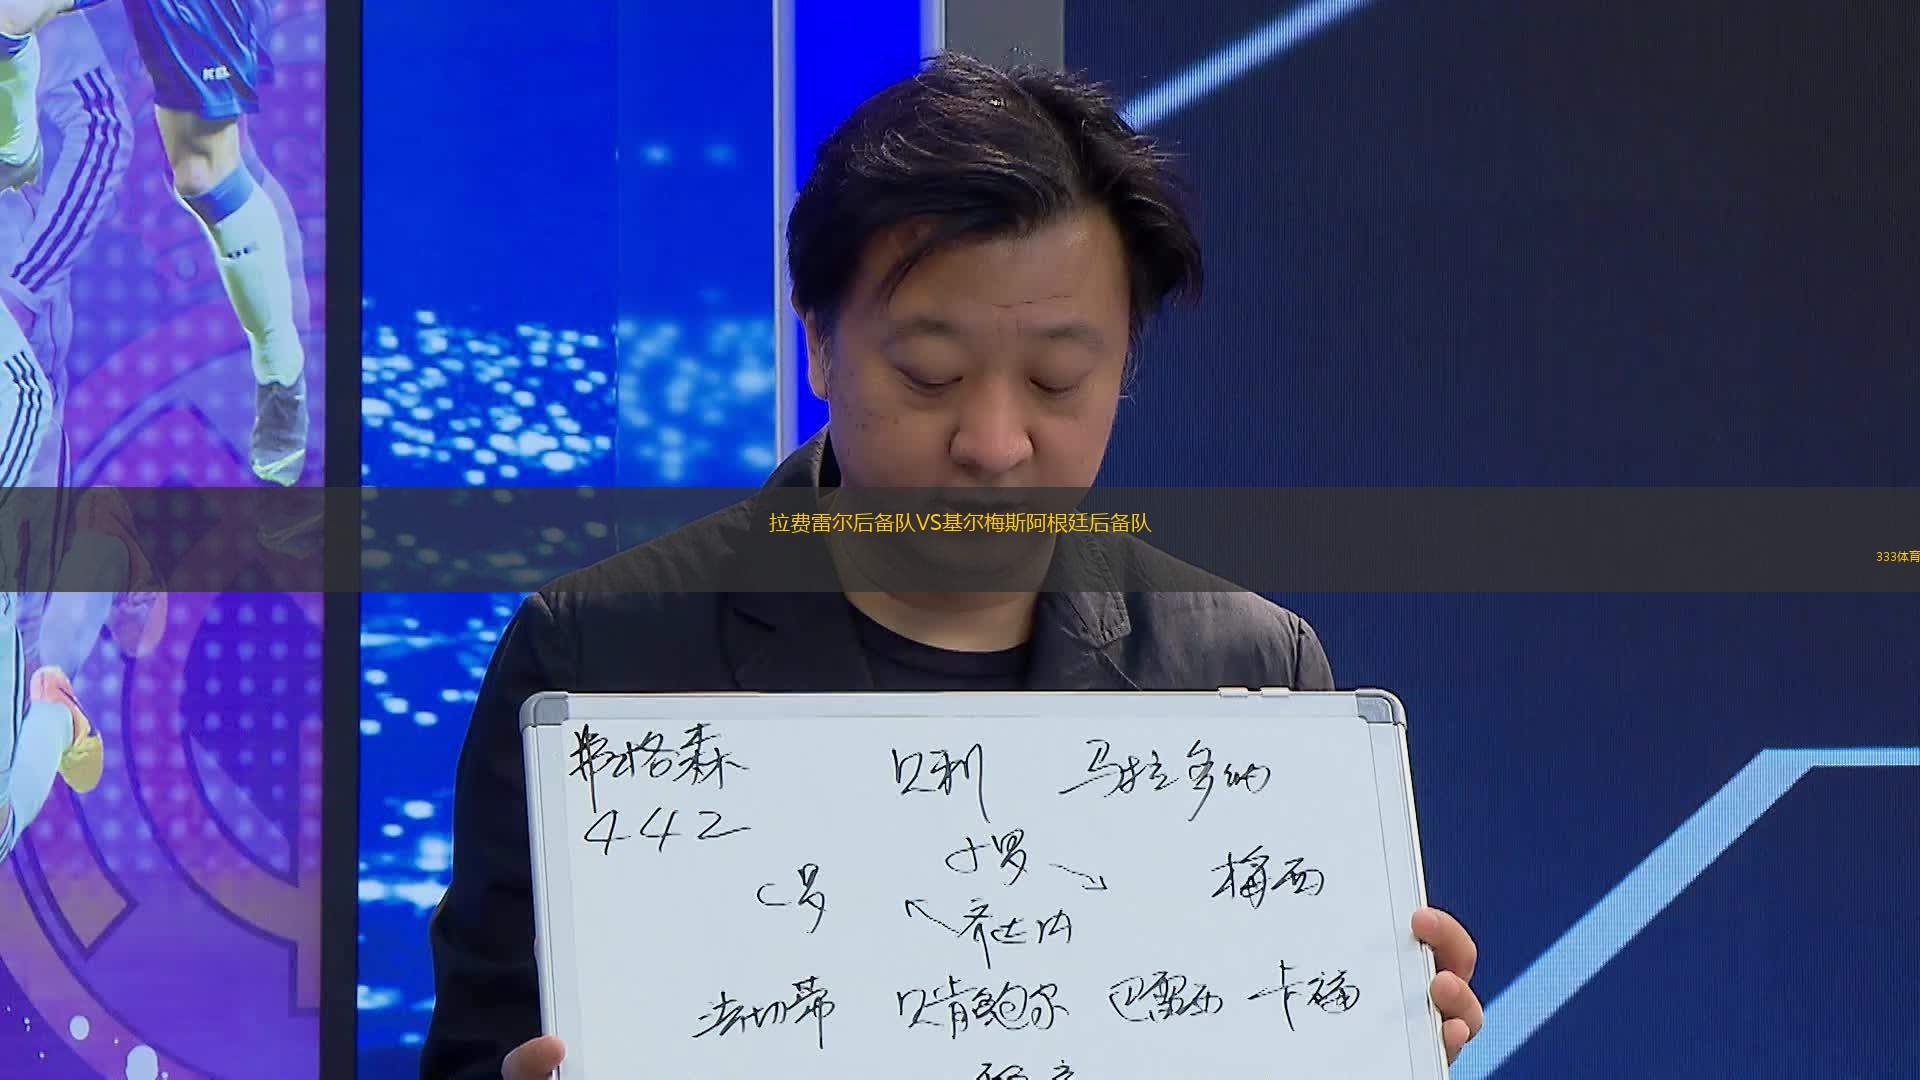 拉费雷尔后备队VS基尔梅斯阿根廷后备队
333体育
弗格森 贝利 马拉多纳
442
小罗
C罗 梅西
齐达内
法切蒂 贝肯鲍尔 巴雷西 卡福